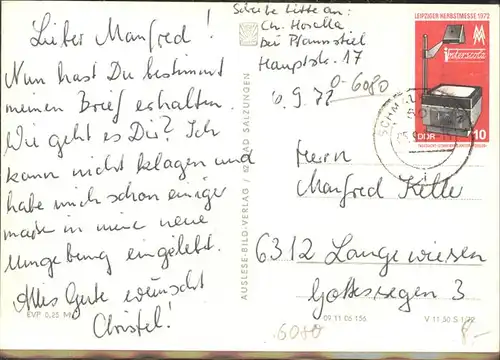 Lieber Manfred!
Nun hast Du bestimmt
meinen Brief erhalten.
Wie geht es Dir? Ich
kann nicht klagen und
habe mich schon einiger
maßen in meine neue
Umgebung eingelebt.
Alles Gute wünscht
Christel!
EVP 0,25 M
AUSLESE-BILD-VERLAG / BAD SALZUNGEN
Schreibe bitte an:
Ch. Hosella
bei Pfannstiel
Hauptstr. 17
0-6080
6.9.72
LEIPZIGER HERBSTMESSE 1972
MM
DDR 10
SCHM
Herrn
Manfred Keller
6312 Langewiesen
Gottessegen 3
09 11 06 156
V 11 50 S 1/72
6080
8,-